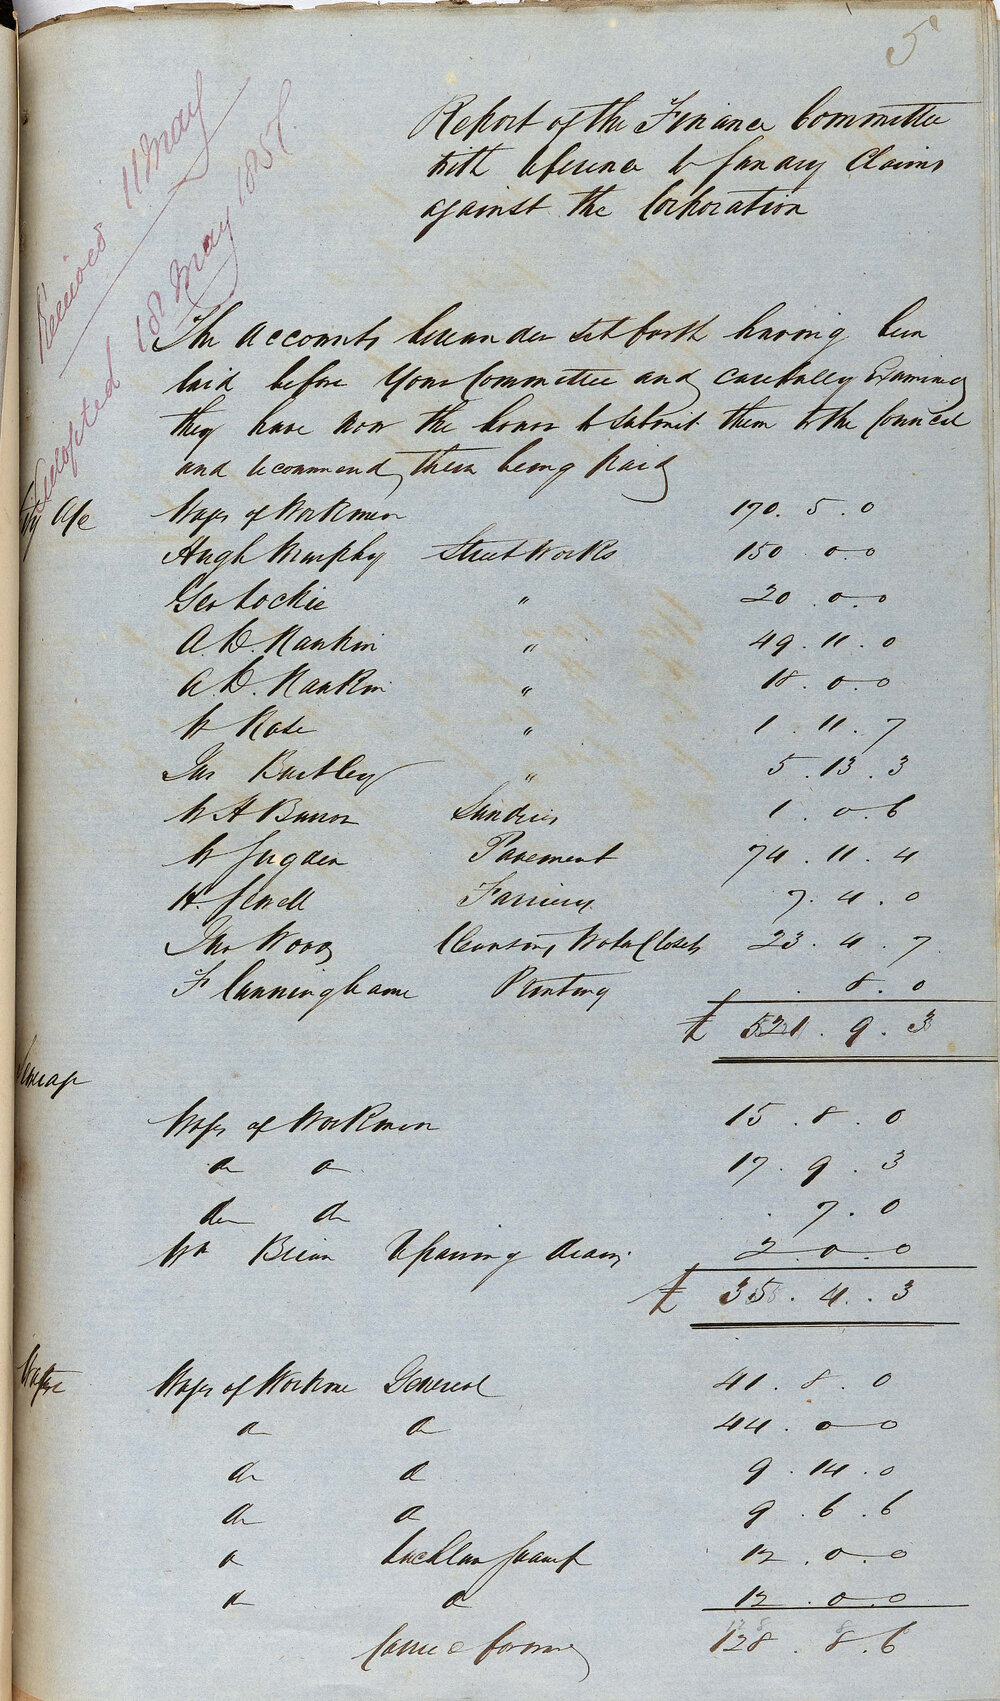 5
Received 11 May
Adopted 18 May 1857.
Report of the Finance Committee
with reference to Sundry Claims
against the Corporation
The Accounts hereunder set forth having been
laid before Your Committee and carefully Examined
they have now the honor to submit them to the Council
and recommend their being paid
City A/c
Wages of Workmen 170. 5. 0
Hugh Murphy Street Works 150 0. 0
Geo Lockie " 20. 0. 0
A. K. Rankin " 49. 11. 0
A. K. Rankin " 18. 0. 0
W Rose " 1. 11. 7
Jas Bartley " 5. 13. 3
W H Baron Sundries 1. 0. 6
W Sugden Pavement 74. 11. 4
H. Sewell Farriery 7. 4. 0
Thos Wood Cleansing Water Closets 23. 4. 7
F Cunninghame Printing . 8. 0
£ 521. 9. 3
Sewerage
Wages of Workmen 15. 8. 0
do do 17. 9. 3
do do . 7. 0
Wm Brian repairing drain 2. 0. 0
£ 35. 4. 3
Water
Wages of Workmen General 41. 8. 0
do do 44. 0 0
do do 9. 14. 0
do do 9. 6. 6
do Lachlan Swamp 12. 0. 0
do do 12. 0. 0
Carried forward 128. 8. 6